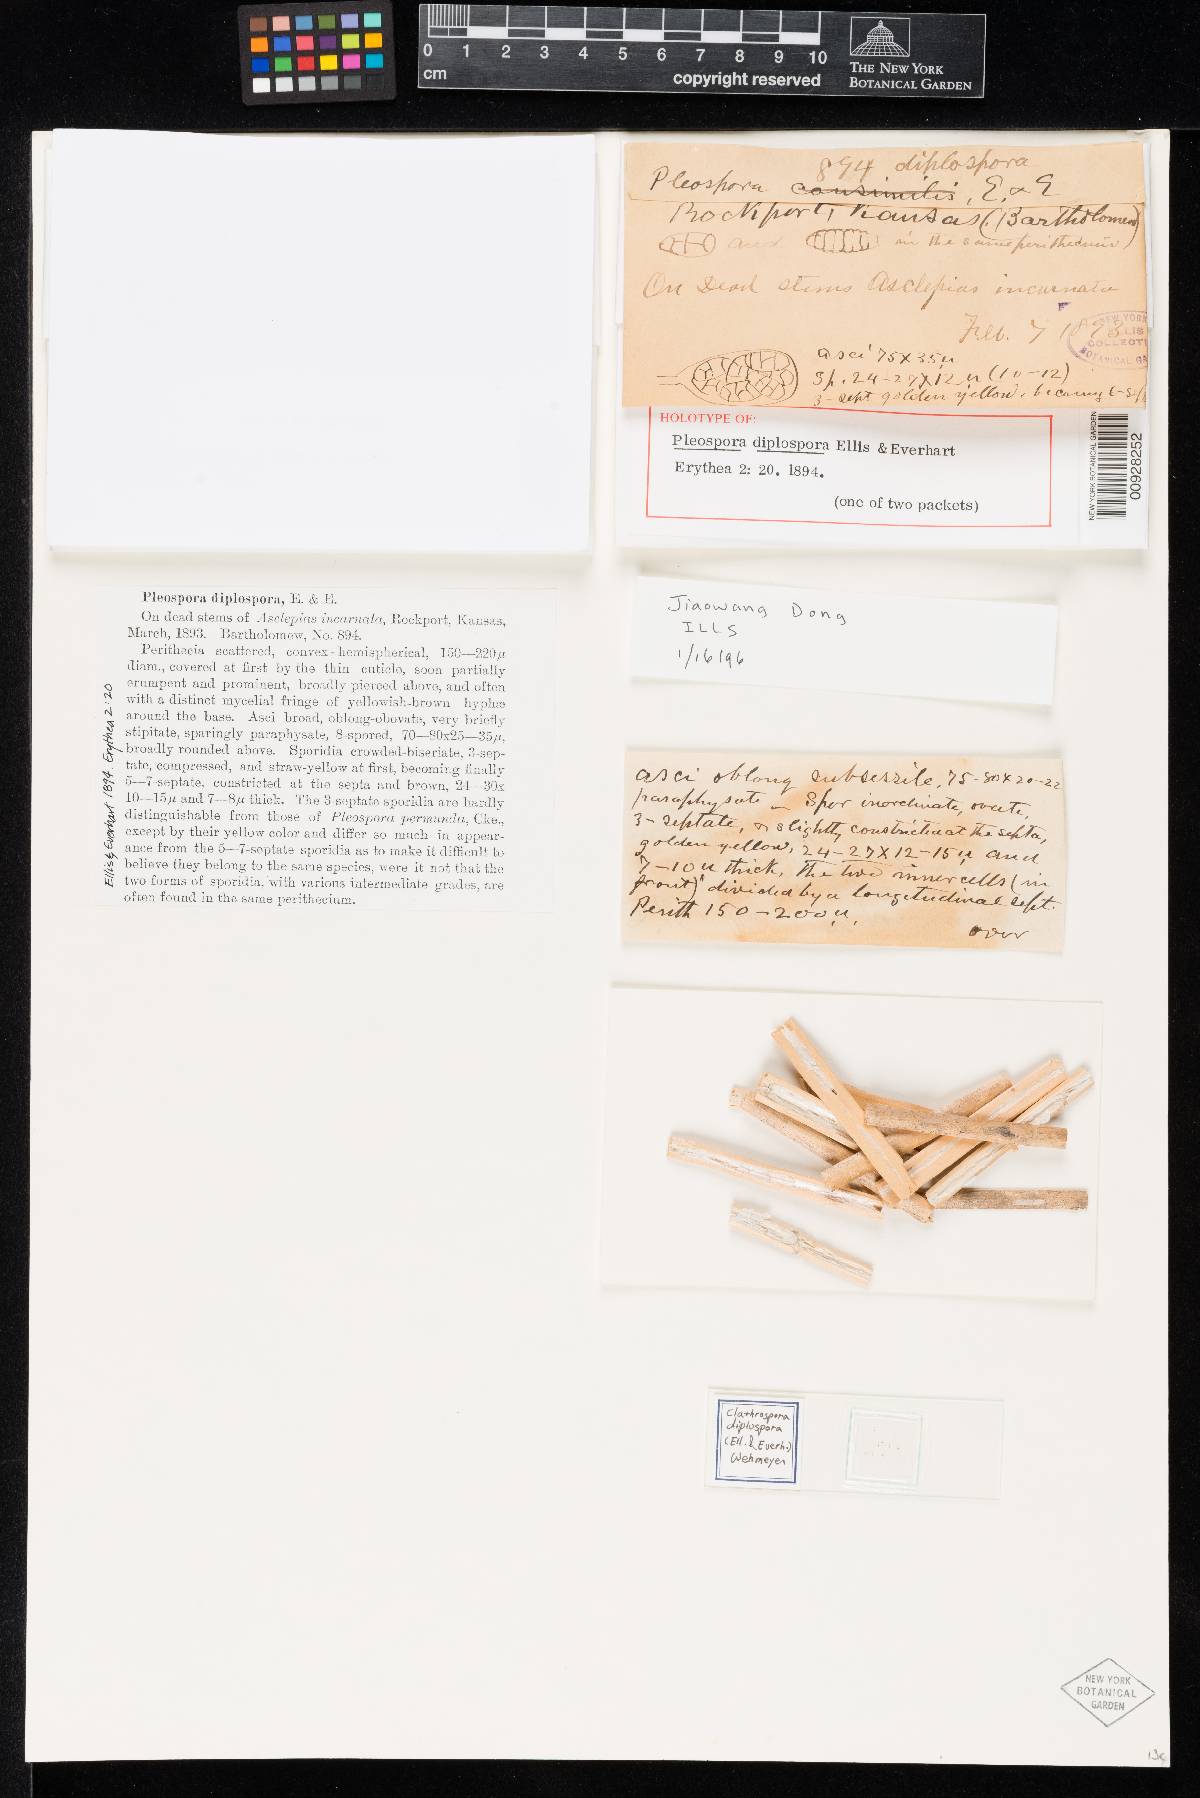 0 1 2 3 4 5 6 7 8 9 10
cm
copyright reserved
THE NEW YORK
BOTANICAL GARDEN
894 diplospora
Pleospora consimilis, E. & E
Rockport, Kansas (Bartholomew)
and in the same perithecium
On Dead stems Asclepias incarnata
Feb. 7 1893
NEW YORK
ELLIS
COLLECTI
BOTANICAL GA
asci 75 x 35 µ
Sp. 24-27 x 12 µ (10-12)
3-sept golden yellow, becoming
HOLOTYPE OF:
Pleospora diplospora Ellis & Everhart
Erythea 2: 20. 1894.
(one of two packets)
NEW YORK BOTANICAL GARDEN
00928252
Pleospora diplospora, E. & E.
On dead stems of Asclepias incarnata, Rockport, Kansas,
March, 1893. Bartholomew, No. 894.
Perithecia scattered, convex-hemispherical, 150—220µ
diam., covered at first by the thin cuticle, soon partially
erumpent and prominent, broadly pierced above, and often
with a distinct mycelial fringe of yellowish-brown hyphæ
around the base. Asci broad, oblong-obovate, very briefly
stipitate, sparingly paraphysate, 8-spored, 70—80x25—35µ,
broadly rounded above. Sporidia crowded-biseriate, 3-sep-
tate, compressed, and straw-yellow at first, becoming finally
5—7-septate, constricted at the septa and brown, 24—30x
10—15µ and 7—8µ thick. The 3-septate sporidia are hardly
distinguishable from those of Pleospora permunda, Cke.,
except by their yellow color and differ so much in appear-
ance from the 5—7-septate sporidia as to make it difficult to
believe they belong to the same species, were it not that the
two forms of sporidia, with various intermediate grades, are
often found in the same perithecium.
Ellis & Everhart 1894. Erythea 2:20
Jiaowang Dong
ILLS
1/16/96
asci oblong subsessile, 75-80 x 20-22
paraphysate — Spor inordinate, ovate,
3-septate, & slightly constricted at the septa,
golden yellow, 24-27 x 12-15 µ and
7-10 µ thick, the two inner cells (in
front) divided by a longitudinal sept.
Perith 150-200 µ.
over
Clathrospora
diplospora
(Ell. & Everh.)
Wehmeyer
NEW YORK
BOTANICAL
GARDEN